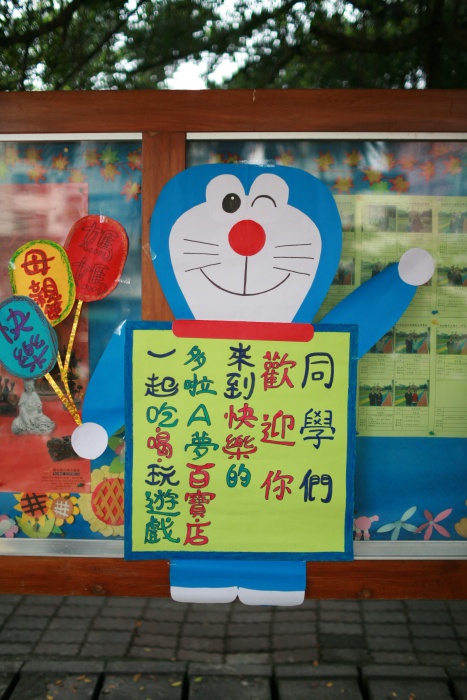 同學們
歡迎你
來到快樂的
多啦A夢百寶店
一起吃喝玩遊戲
媽媽
母親
快樂